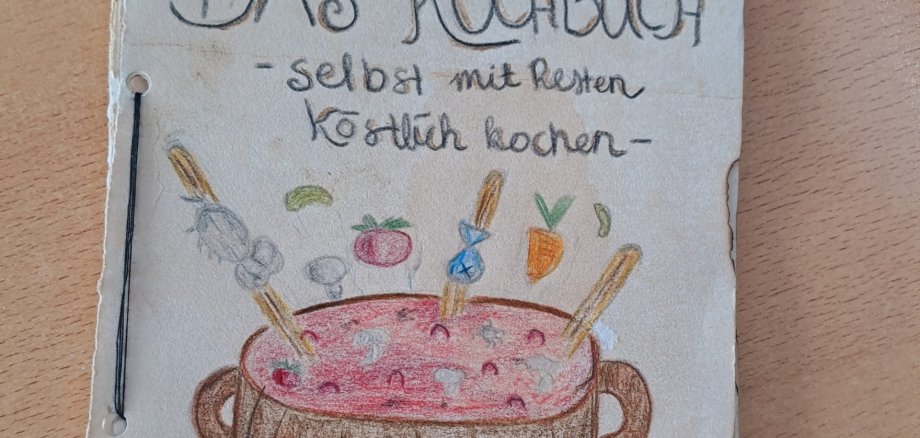 DAS KOCHBUCH
- selbst mit Resten
Köstlich kochen -